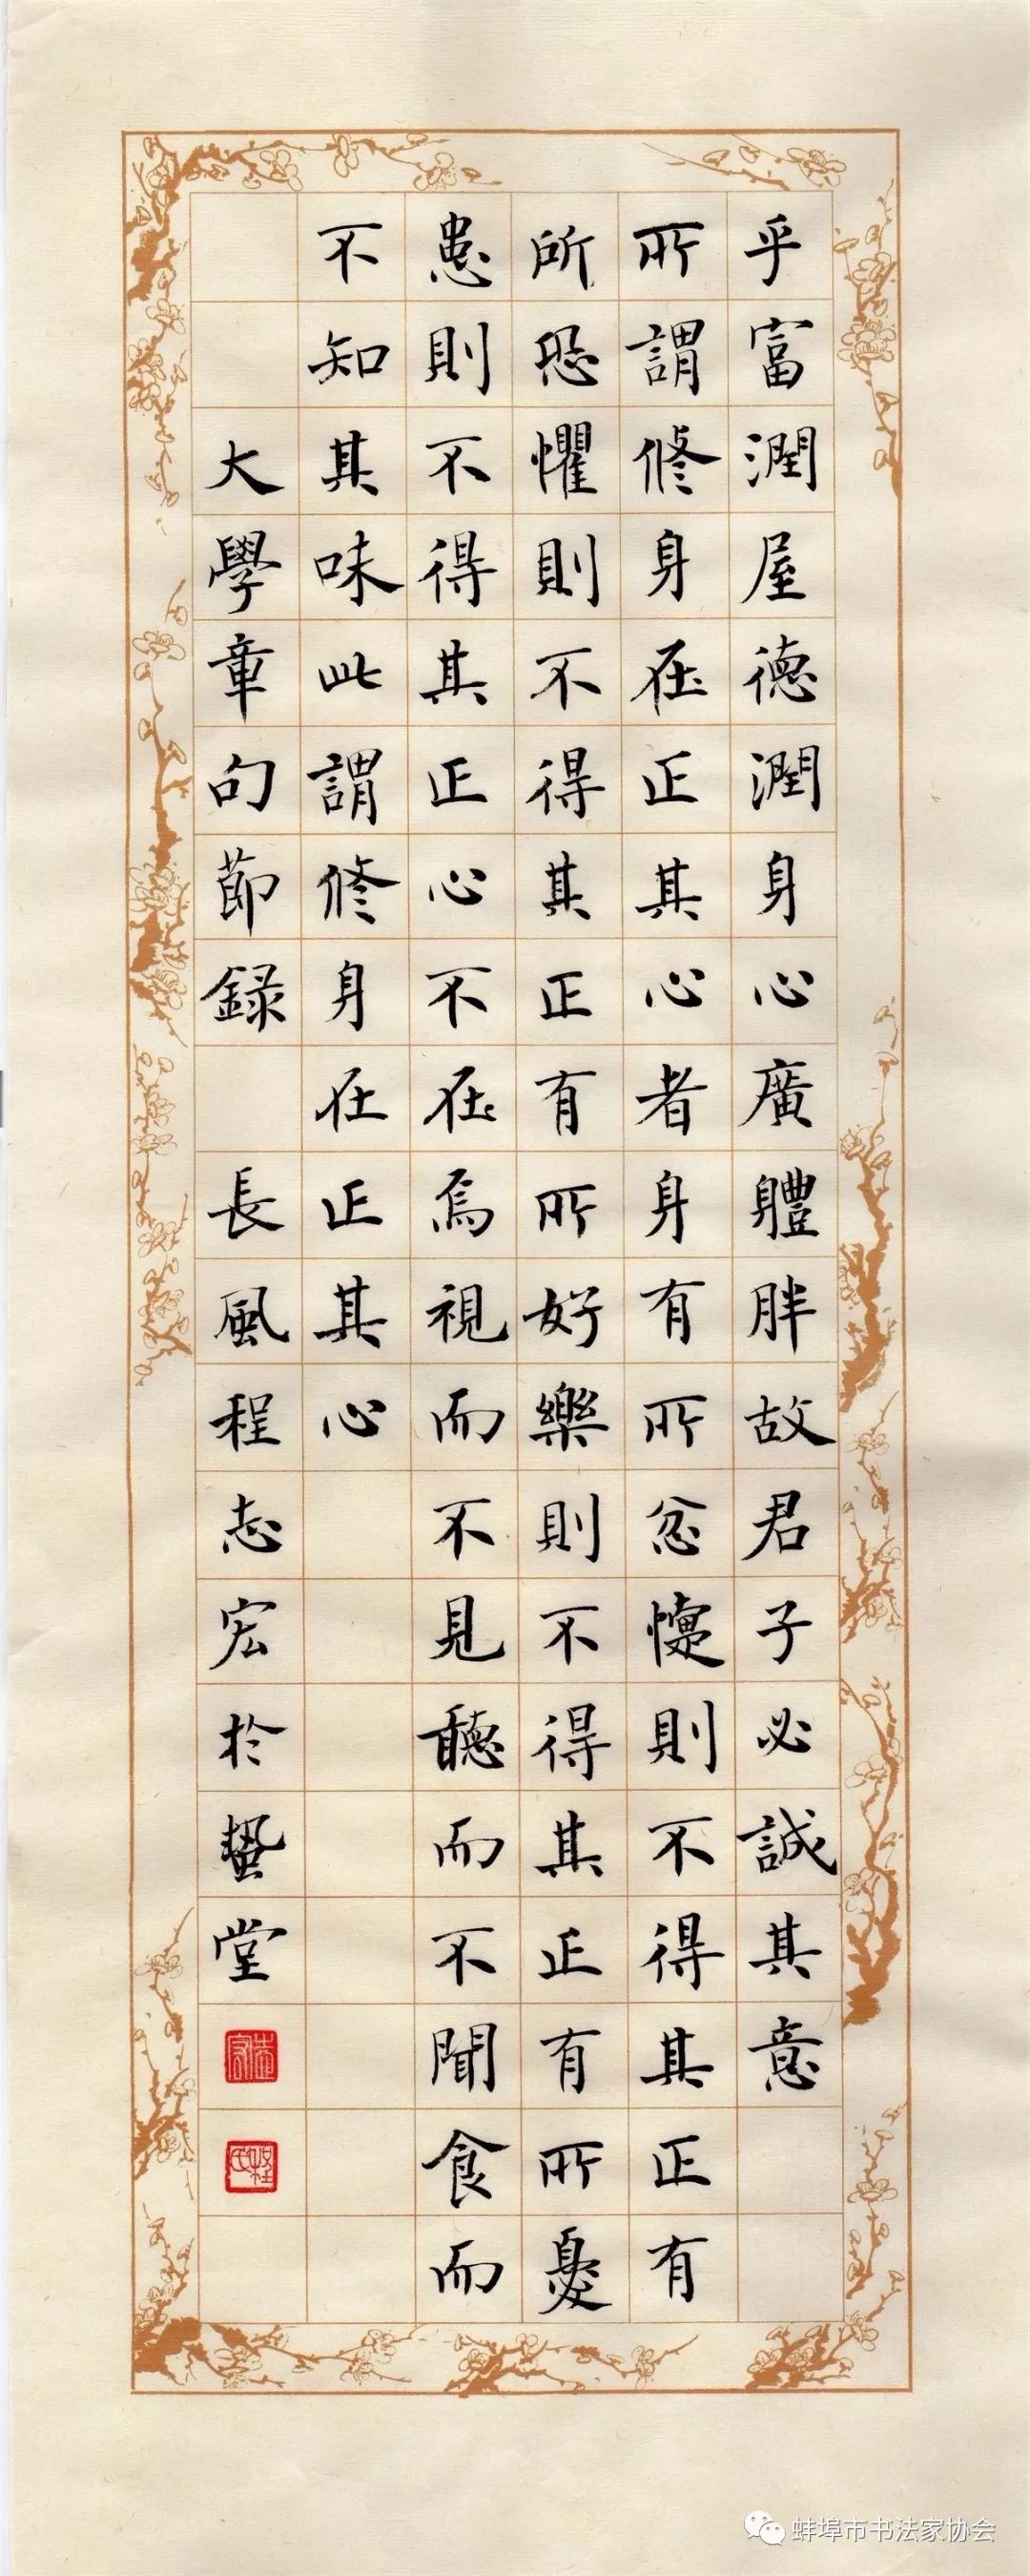 乎富潤屋德潤身心廣體胖故君子必誠其意
所謂修身在正其心者身有所忿懥則不得其正有
所恐懼則不得其正有所好樂則不得其正有所憂
患則不得其正心不在焉視而不見聽而不聞食而
不知其味此謂修身在正其心
大學章句節録 長風程志宏於蟄堂
志宏
程氏
蚌埠市书法家协会